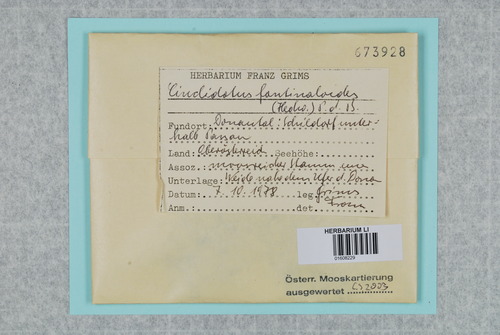 673928
HERBARIUM FRANZ GRIMS
Cinclidotus fontinaloides
(Hedw.) P. d. B.
Fundort: Donautal: Schildorf unter-
halb Passau
Land: Oberösterreich Seehöhe:
Assoz.: moosreicher Stamm einer
Unterlage: Weide nahe dem Ufer d. Donau
Datum: 7. 10. 1978 leg. Grims
Anm.: det.
HERBARIUM LI
01608229
Österr. Mooskartierung
ausgewertet 2003